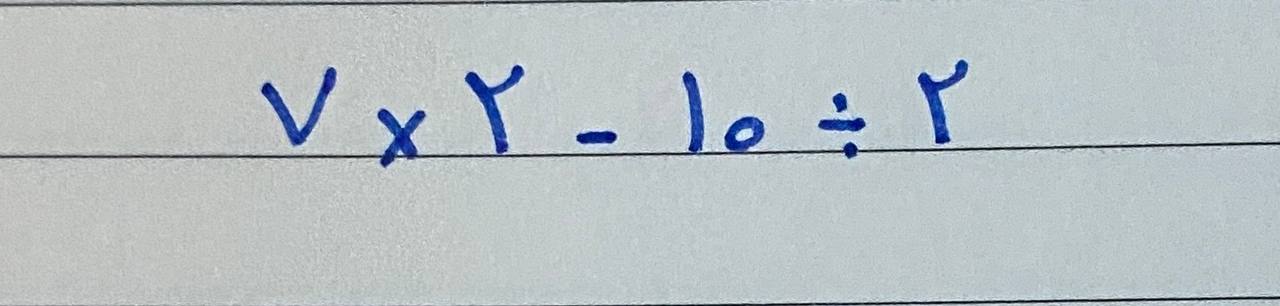 ۷ × ۲ - ۱۰ ÷ ۲